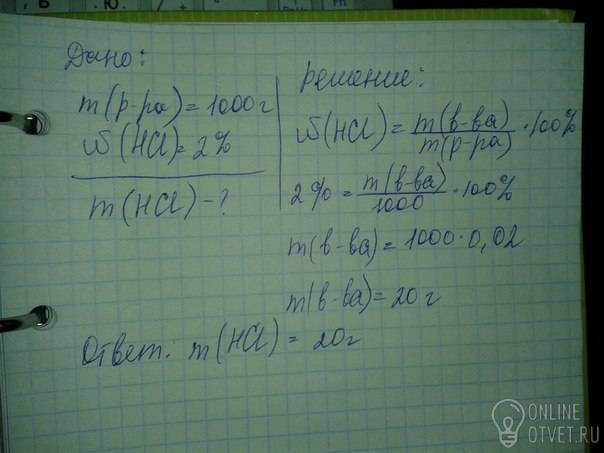 Дано:
m(р-ра) = 1000 г
ω(HCl) = 2%
m(HCl) - ?
решение:
ω(HCl) = m(в-ва) / m(р-ра) · 100%
2% = m(в-ва) / 1000 · 100%
m(в-ва) = 1000 · 0,02
m(в-ва) = 20 г
Ответ: m(HCl) = 20 г
ONLINE
OTVET.RU